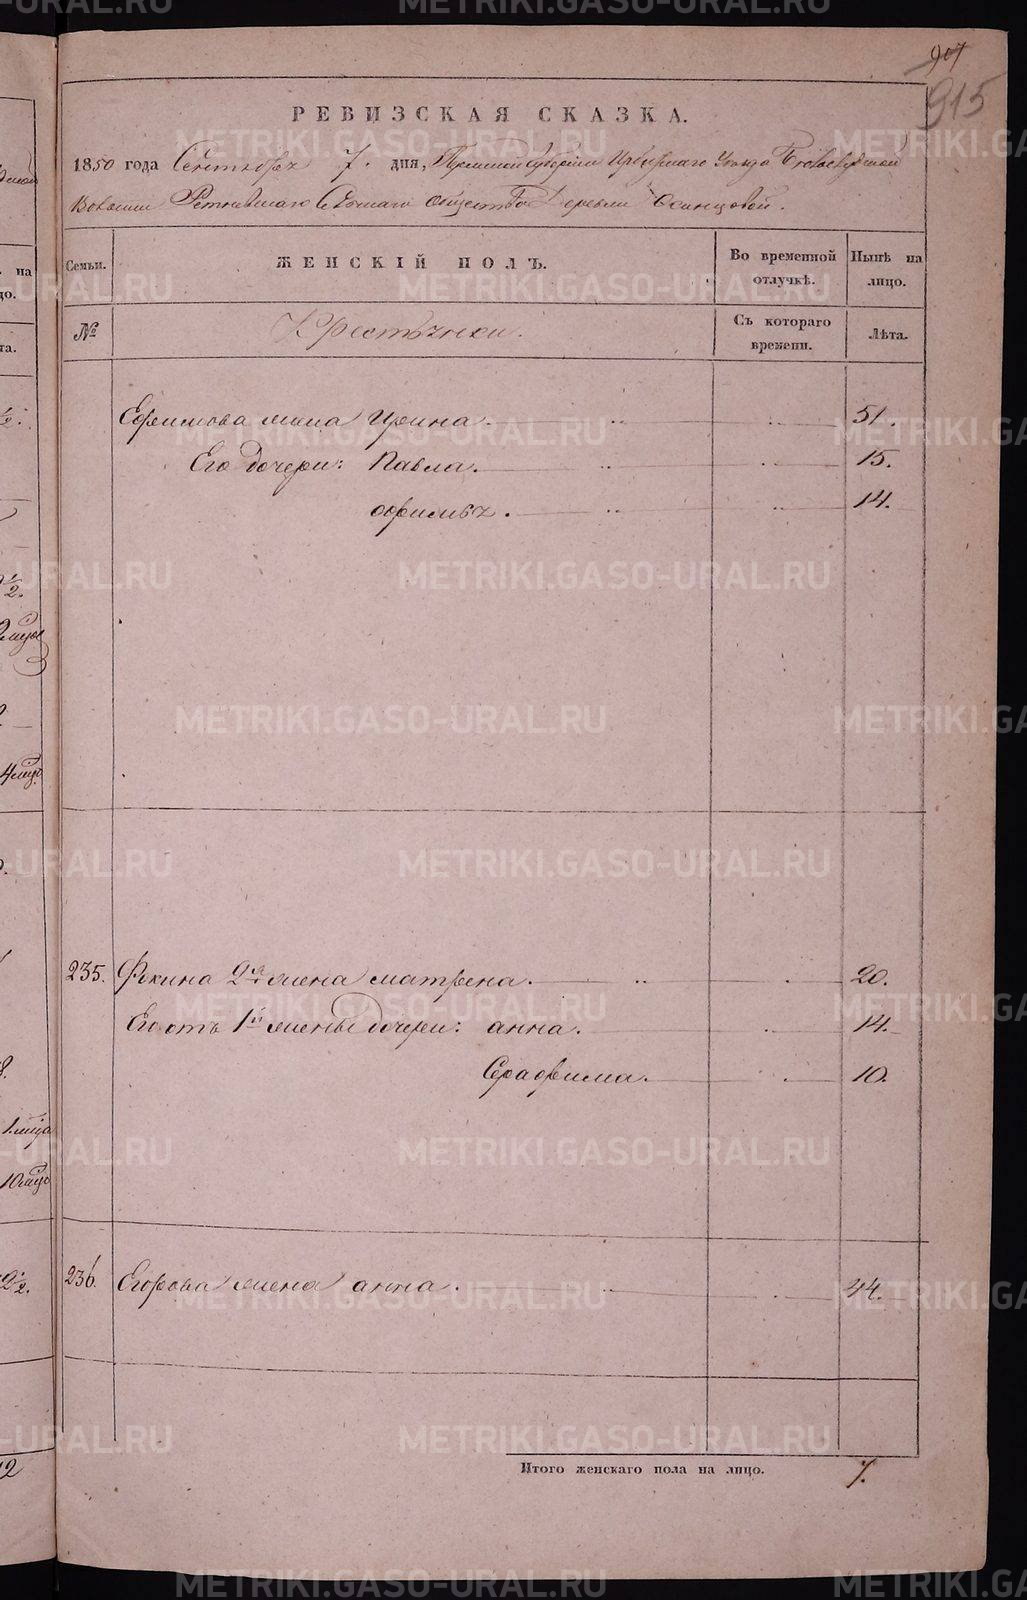 METRIKI.GASO-URAL.RU
907
915
РЕВИЗСКАЯ СКАЗКА.
1850 года Сентября 7. дня, Пермской губернии Ирбитскаго Уезда
Волости Ретневскаго Сельскаго Общества Деревни Осинцовой.
Семьи. ЖЕНСКІЙ ПОЛЪ. Во временной отлучкѣ. Нынѣ на лицо.
№ Крестьянки. Съ котораго времени. Лѣта.
Ефимова жена Ирина. 51.
Его дочери: Павла. 15.
14.
235. Фокина 2я жена матрена. 20.
Его отъ 1й жены дочери: анна. 14.
Серафима. 10.
236. Егорова жена анна. 44.
Итого женскаго пола на лицо. 7.